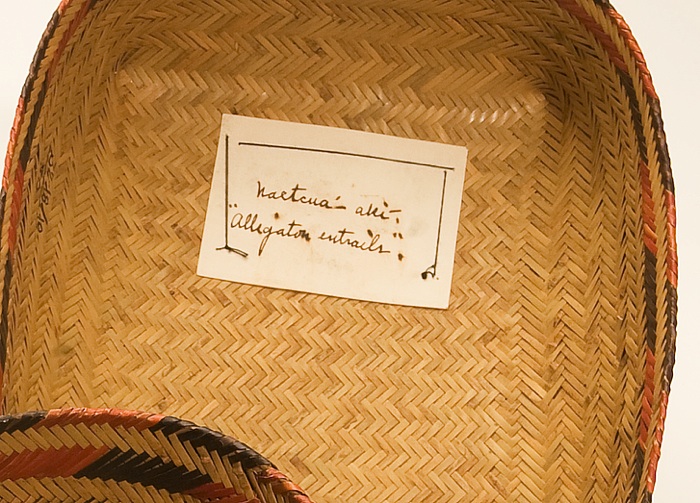 naetcua - aki -
"Alligator entrails".